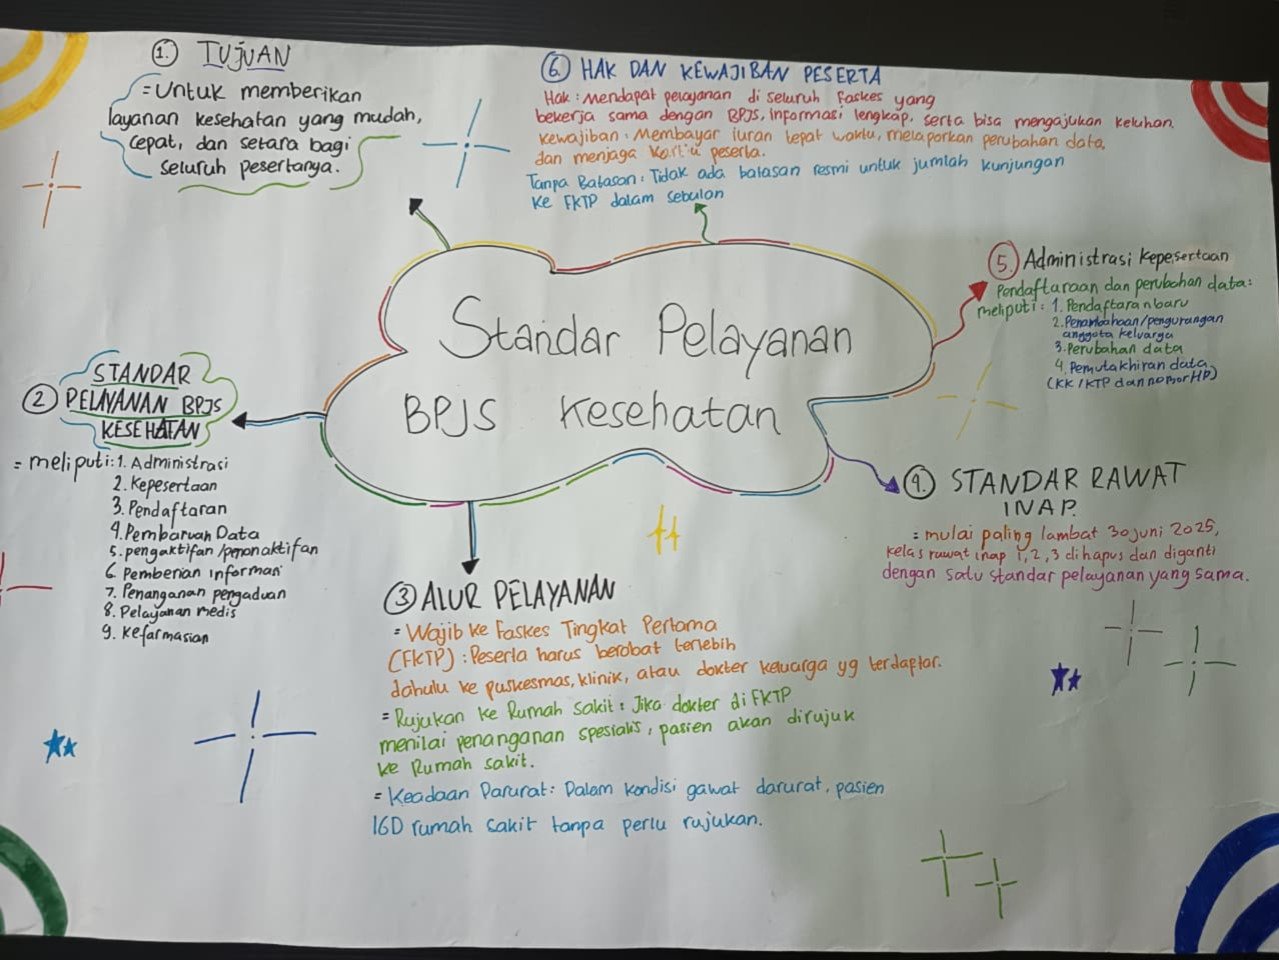 1. TUJUAN
= Untuk memberikan
layanan kesehatan yang mudah,
cepat, dan setara bagi
seluruh pesertanya.
6. HAK DAN KEWAJIBAN PESERTA
Hak : Mendapat pelayanan di seluruh faskes yang
bekerja sama dengan BPJS, informasi lengkap, serta bisa mengajukan keluhan.
Kewajiban : Membayar iuran tepat waktu, melaporkan perubahan data,
dan menjaga Kartu peserta.
Tanpa Batasan : Tidak ada batasan resmi untuk jumlah kunjungan
Ke FKTP dalam sebulan
Standar Pelayanan
BPJS Kesehatan
5. Administrasi Kepesertaan
Pendaftaraan dan perubahan data :
meliputi : 1. Pendaftaran baru
2. Penambahaan/pengurangan
anggota keluarga
3. Perubahan data
4. Pemutakhiran data
(KK / KTP dan nomor HP)
2 STANDAR
PELAYANAN BPJS
KESEHATAN
= meliputi : 1. Administrasi
2. Kepesertaan
3. Pendaftaran
4. Pembaruan Data
5. pengaktifan /penonaktifan
6. Pemberian informasi
7. Penanganan pengaduan
8. Pelayanan medis
9. Kefarmasian
4. STANDAR RAWAT
INAP.
= mulai paling lambat 30 juni 2025,
kelas rawat inap 1, 2, 3 dihapus dan diganti
dengan satu standar pelayanan yang sama.
3 ALUR PELAYANAN
= Wajib Ke Faskes Tingkat Pertama
(FKTP) : Peserta harus berobat terlebih
dahulu ke puskesmas, klinik, atau dokter keluarga yg terdaftar.
= Rujukan Ke Rumah Sakit : Jika dokter di FKTP
menilai penanganan spesialis, pasien akan dirujuk
Ke Rumah Sakit.
= Keadaan Darurat : Dalam kondisi gawat darurat, pasien
IGD rumah sakit tanpa perlu rujukan.